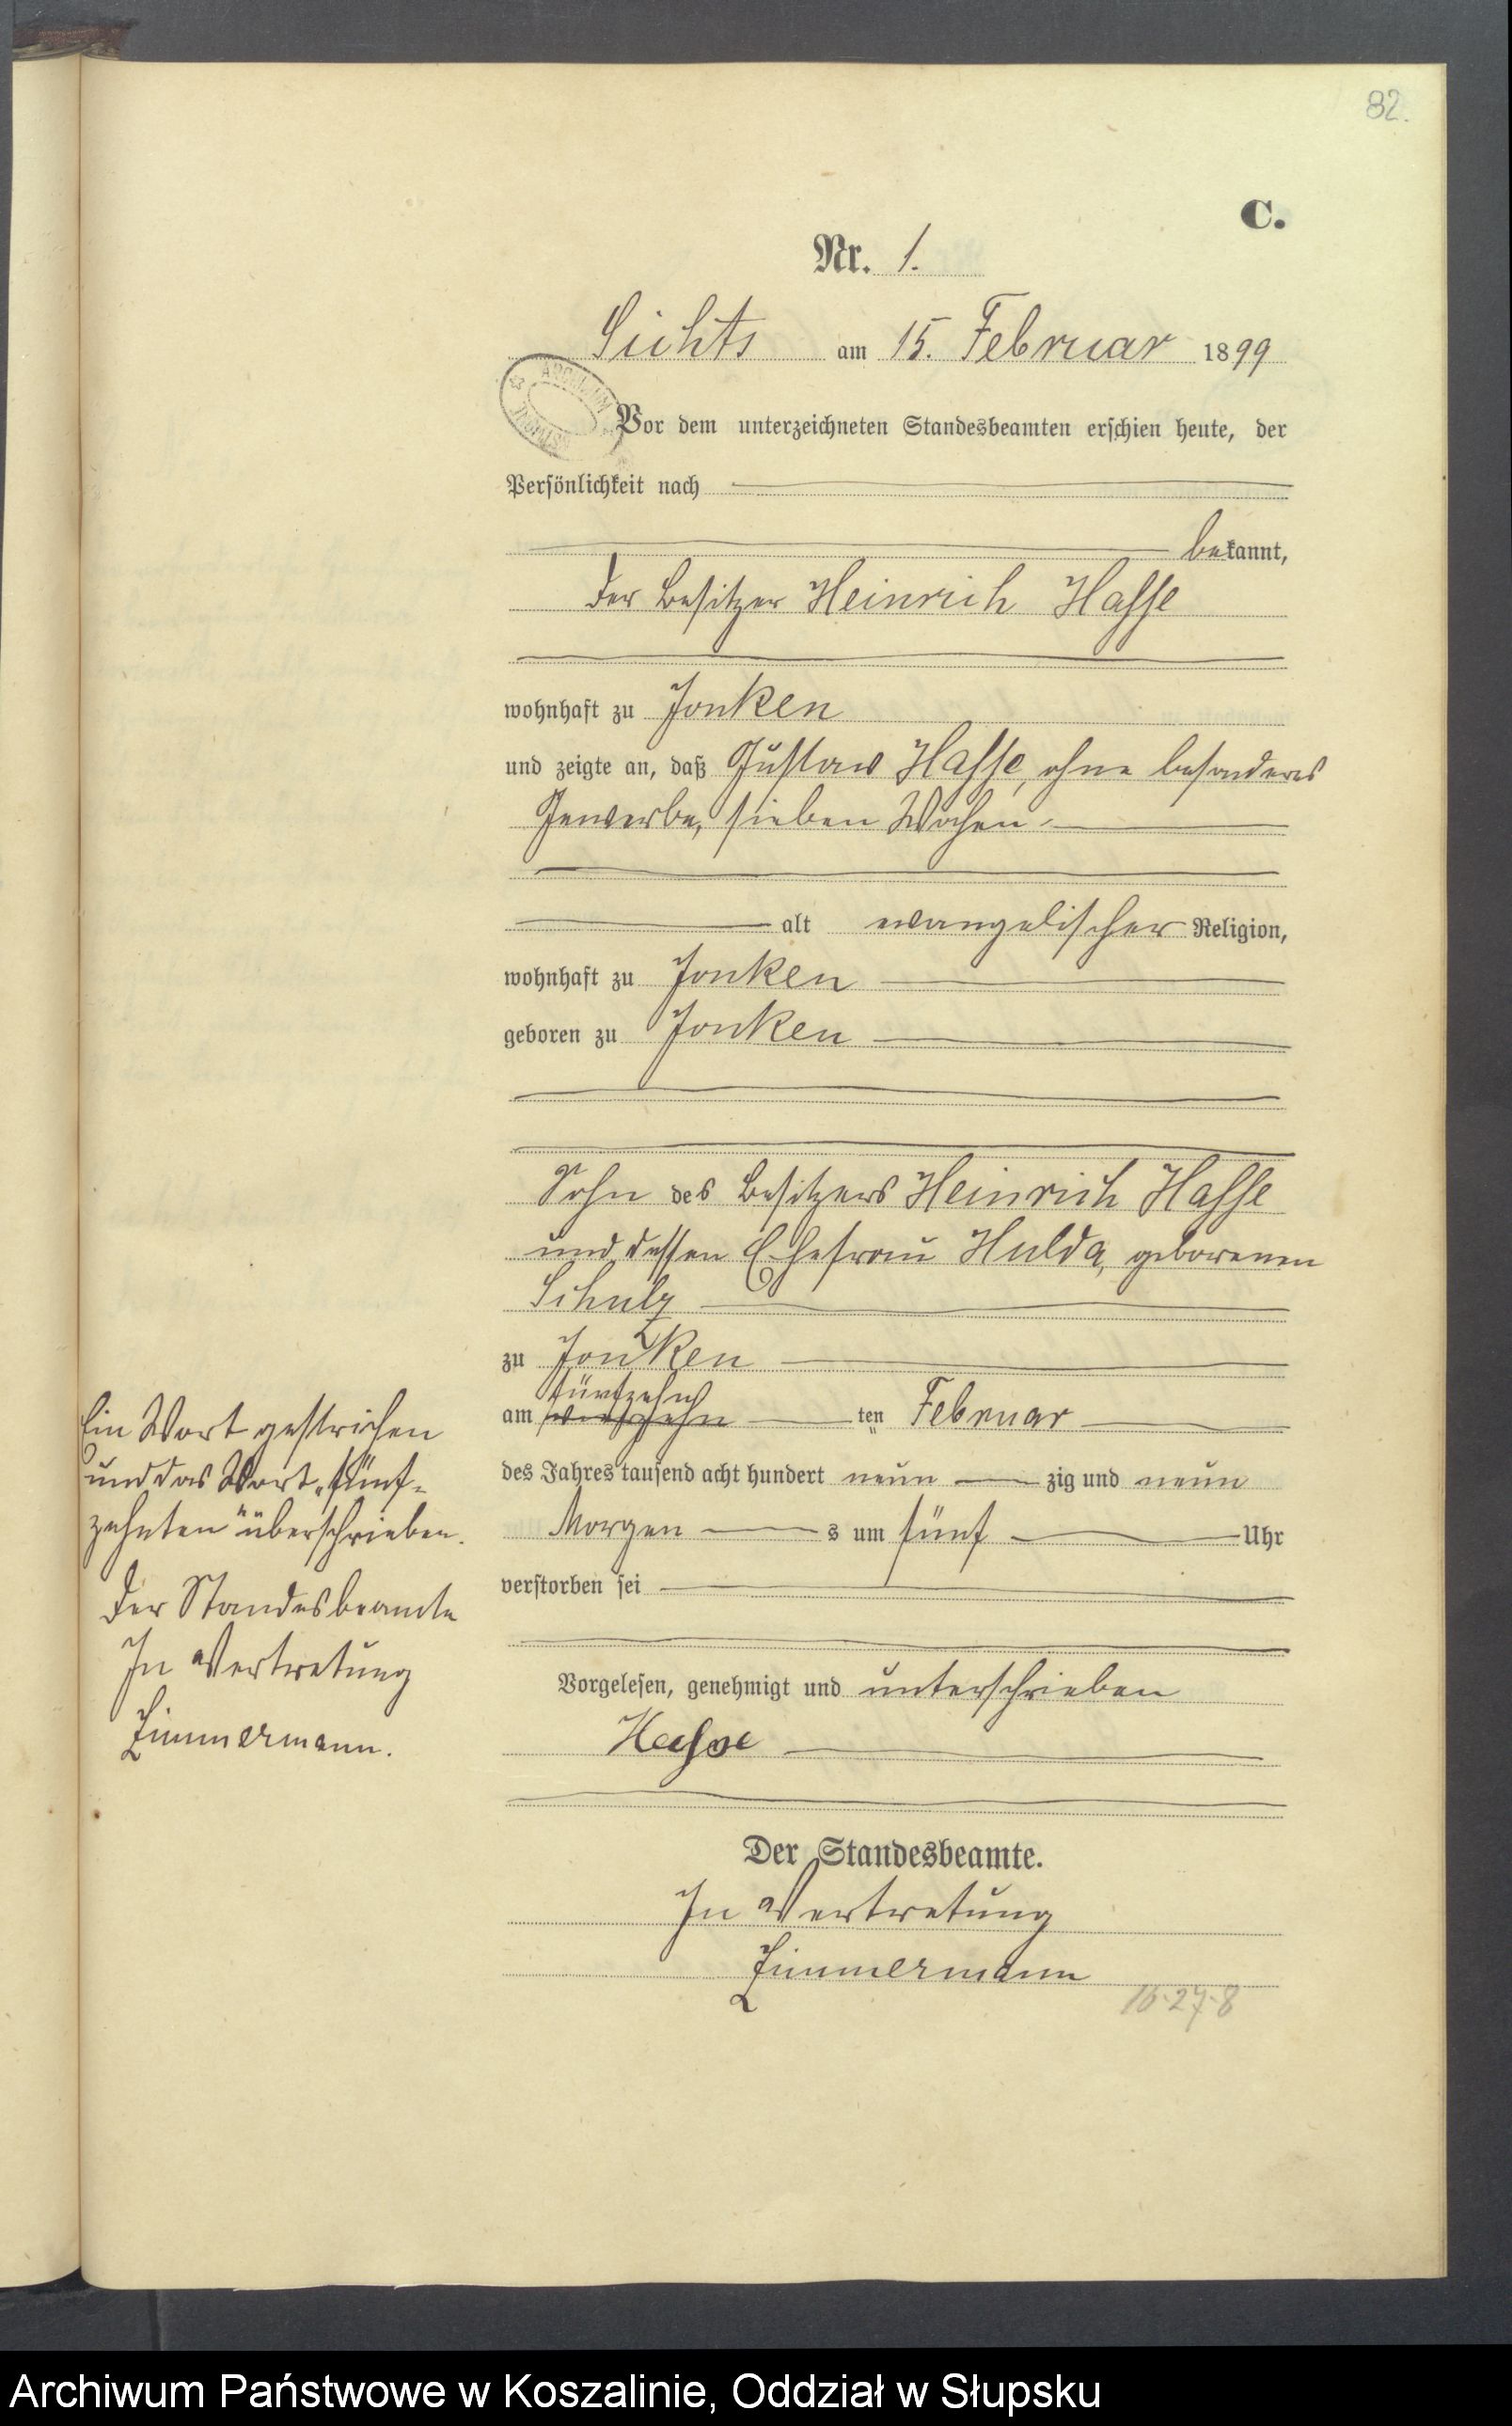 82.
C.
Nr. 1.
Lichts am 15. Februar 1899
Vor dem unterzeichneten Standesbeamten erschien heute, der
Persönlichkeit nach
bekannt,
der Besitzer Heinrich Hasse
wohnhaft zu Jonken
und zeigte an, daß Gustaw Hasse, ohne besonderes
Gewerbe, sieben Wochen
alt evangelischer Religion,
wohnhaft zu Jonken
geboren zu Jonken
Sohn des Besitzers Heinrich Hasse
und dessen Ehefrau Hulda, geborenen
Schulz
zu Jonken
fünfzehn
am vierzehn ten Februar
des Jahres tausend acht hundert neun zig und neun
Morgen s um fünf Uhr
verstorben sei
Ein Wort gestrichen
und das Wort „fünf-
zehnten" überschrieben.
Der Standesbeamte
In Vertretung
Zimmermann.
Vorgelesen, genehmigt und unterschrieben
Hasse
Der Standesbeamte.
In Vertretung
Zimmermann
16-27-8
Archiwum Państwowe w Koszalinie, Oddział w Słupsku